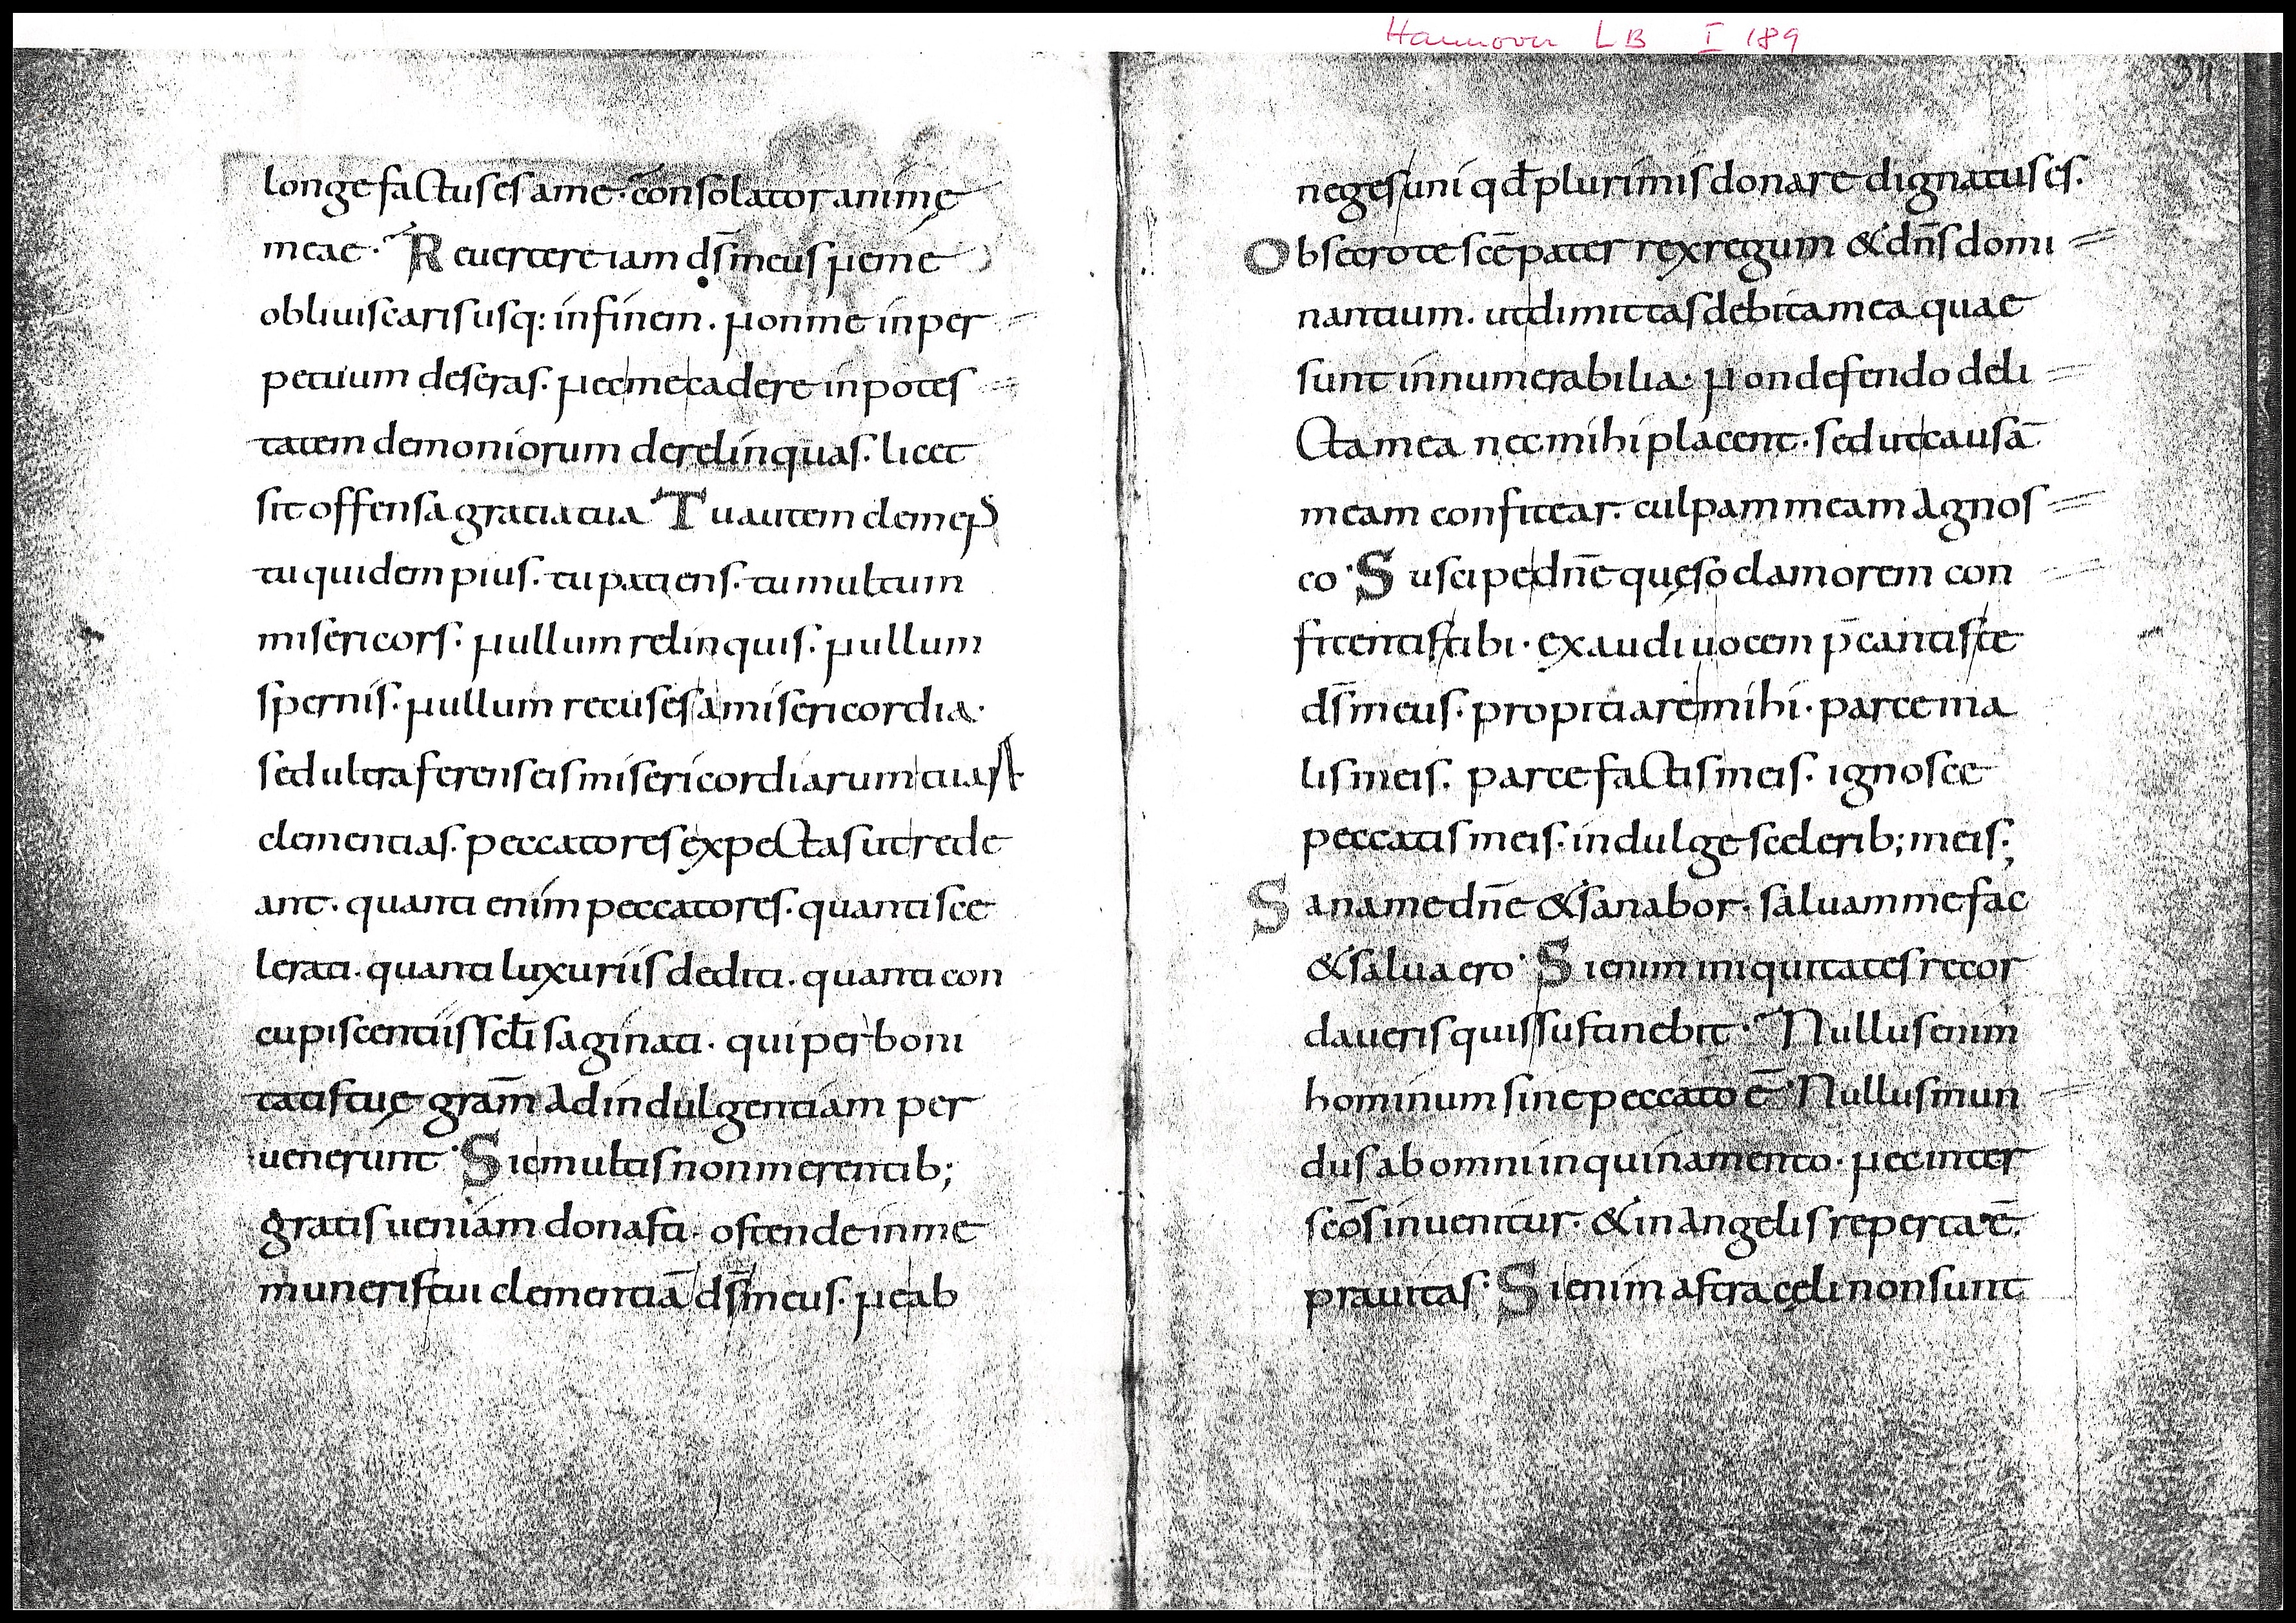 Hannover LB I 189
34
longe factus es a me · c̄onsolator animę
meae · Reuertere iam ds̄ meus Ne me
obliuiscaris usq: in finem . Non me in per
petuum deseras . Nec me cadere in potes
tatem demoniorum derelinquas . licet
sit offensa gratia tua Tu autem clemeNS
tu quidem pius . tu patiens . tu multum
misericors . Nullum relinquis . Nullum
spernis . Nullum recuses a misericordia ·
sed ultra ferens eis misericordiarum tuaR
clementias . peccatores expectas ut rede
ant . quanti enim peccatores . quanti sce
lerati . quanti luxuriis dediti . quanti con
cupiscentiis scl̄i saginati . qui per boni
tatis tuę gram̄ ad indulgentiam per
uenerunt · Sic multis non merentib;
gratis ueniam donasti . ostende in me
muneris tui clementiā ds̄ meus . Ne ab
neges uni qd̄ plurimis donare dignatus es .
Obsecro te scē pater rex regum & dn̄s domi
nantium . ut dimittas debita mea quae
sunt innumerabilia · Non defendo deli
cta mea nec mihi placent · sed ut causā
meam confitear . culpam meam agnos
co · Suscipe dn̄e quęso clamorem con
fitentis tibi · exaudi uocem p̄cantis te
ds̄ meus . propitiare mihi . parce ma
lis meis . parce factis meis . ignosce
peccatis meis . indulge scelerib; meis ;
Sana me dn̄e & sanabor . saluam me fac
& salua ero · Si enim iniquitates recor
daueris quis sustinebit · Nullus enim
hominum sine peccato ē · Nullus mun
dus ab omni inquinamento . Nec inter
scōs inuenitur . & in angelis reperta ē
prauitas · Si enim astra cęli non sunt